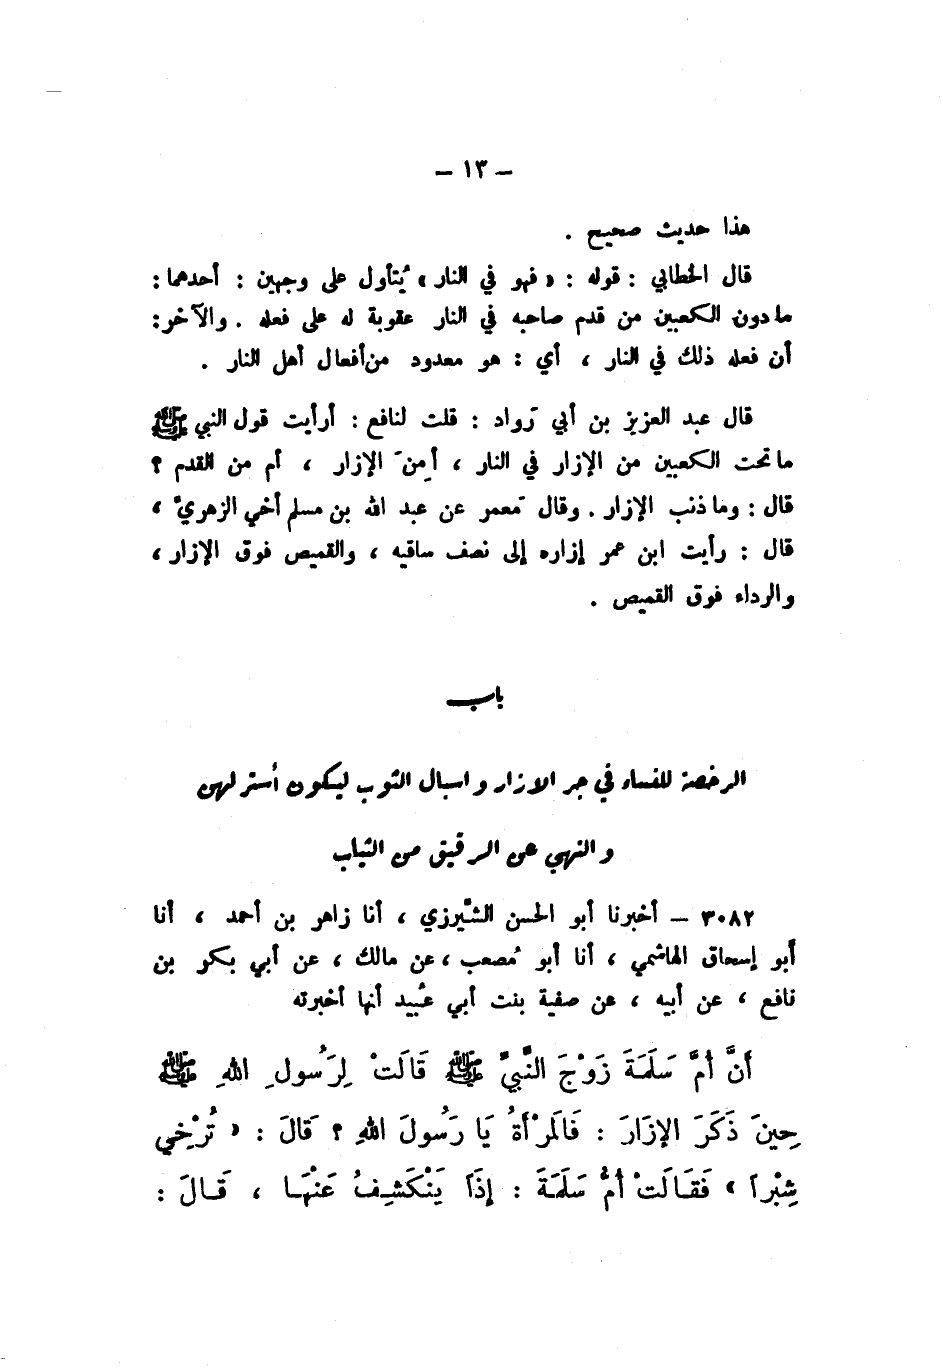 – ١٣ –
هذا حديث صحيح .
قال الخطابي : قوله : « فهو في النار » يُتأول على وجهين : أحدهما :
ما دون الكعبين من قدم صاحبه في النار عقوبة له على فعله . والآخر :
أن فعله ذلك في النار ، أي : هو معدود من أفعال أهل النار .
قال عبد العزيز بن أبي رَواد : قلت لنافع : أرأيت قول النبي ﷺ
ما تحت الكعبين من الإزار في النار ، أمِنَ الإزار ، أم من القدم ؟
قال : وما ذنب الإزار . وقال مَعمر عن عبد الله بن مسلم أخي الزهريِّ ،
قال : رأيت ابن عمر إزاره إلى نصف ساقيه ، والقميص فوق الإزار ،
والرداء فوق القميص .
باب
الرخصة للنساء في جر الازار واسبال الثوب ليكون أستر لهن
والنهي عن الرقيق من الثياب
٣٠٨٢ – أخبرنا أبو الحسن الشِّيرزي ، أنا زاهر بن أحمد ، أنا
أبو إسحاق الهاشمي ، أنا أبو مُصعب ، عن مالك ، عن أبي بكر بن
نافع ، عن أبيه ، عن صفية بنت أبي عُبيد أنها أخبرته
أَنَّ أُمَّ سَلَمَةَ زَوْجَ النَّبيِّ ﷺ قَالَتْ لِرَسُولِ اللهِ ﷺ
حِينَ ذَكَرَ الإزَارَ : فَالمَرْأَةُ يَا رَسُولَ اللهِ ؟ قَالَ : « تُرْخِي
شِبْراً » فَقَالَتْ أُمُّ سَلَمَةَ : إِذَاً يَنْكَشِفُ عَنْهَا ، قَالَ :